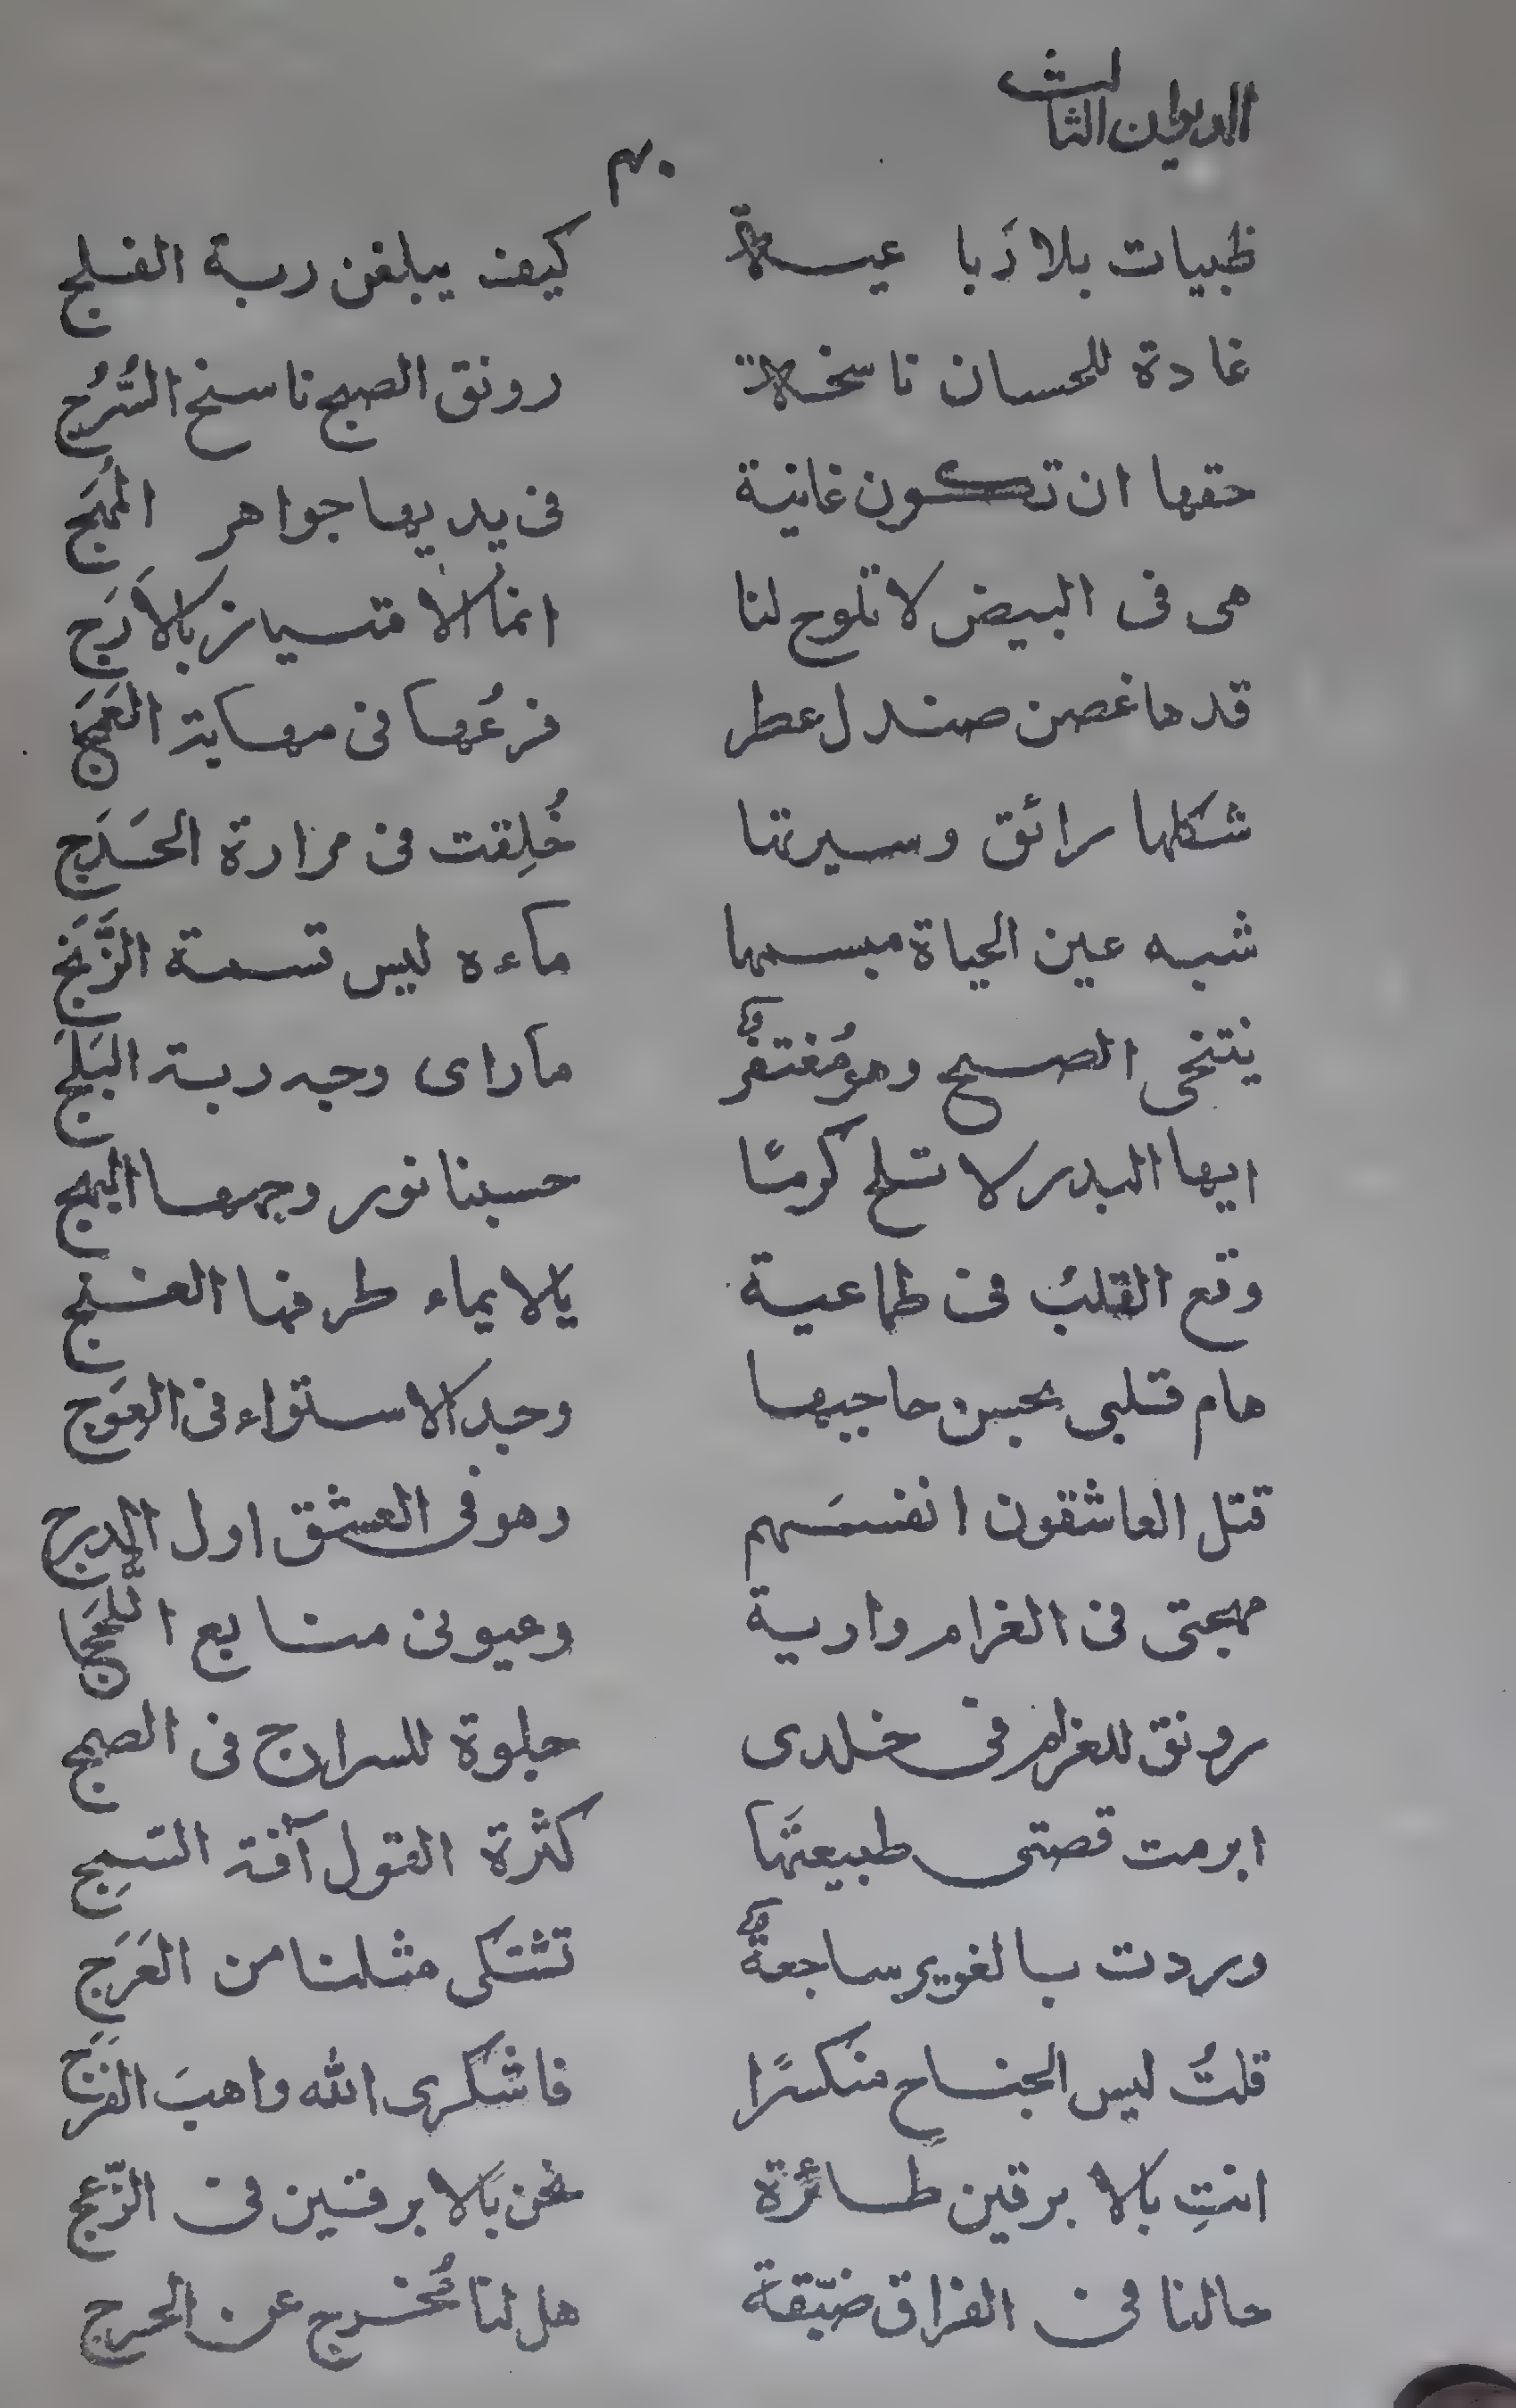 الديوان الثالث
٣٠
ظبيات بلاذبا عيسة كيف يبلغن ربة الفلج
غادة للحسان ناسخة رونق الصبح ناسخ السُّرُج
حقها ان تكون غانية فى يديها جواهر المُهَج
هى فى البيض لا تلوح لنا انما الامتياز بالاَرَج
قدها غصن صندل عطر فرعُها فى مهابة
شكلها رائق وسيرتها خُلِقت فى مرارة الحَدَج
شبه عين الحياة مبسمها ماءه ليس قسمة الرَّنَج
ينتخى الصبح وهو مُغتفرٌ ما راى وجه ربة البَلَج
ايها البدر لا تلح كرمًا حسبنا نور وجهها البهج
وقع القلبُ فى طماعية بالايماء طرفها الغنج
هام قلبى بحسن حاجبيها وجد الاستواء فى العِوَج
قتل العاشقون انفسَهم وهو فى العشق اول الدرج
مهجتى فى الغرام وارية وعيونى منابع اللُّجَج
رونق للغرام فى خلدى جلوة للسراج فى
ابرمت قصتى طبيعتَها كثرة القول آفة السَمِج
وردت بالغوير ساجعةٌ تشتكى مثلنا من العَرَج
قلتُ ليس الجناح منكسرًا فاشكرى الله واهبَ الفَرَج
انتِ بالابرقين طائرة نحن بالابرقين فى الزَّعج
حالنا فى الفراق ضيّقة هل لنا مُخرج عن الحرج